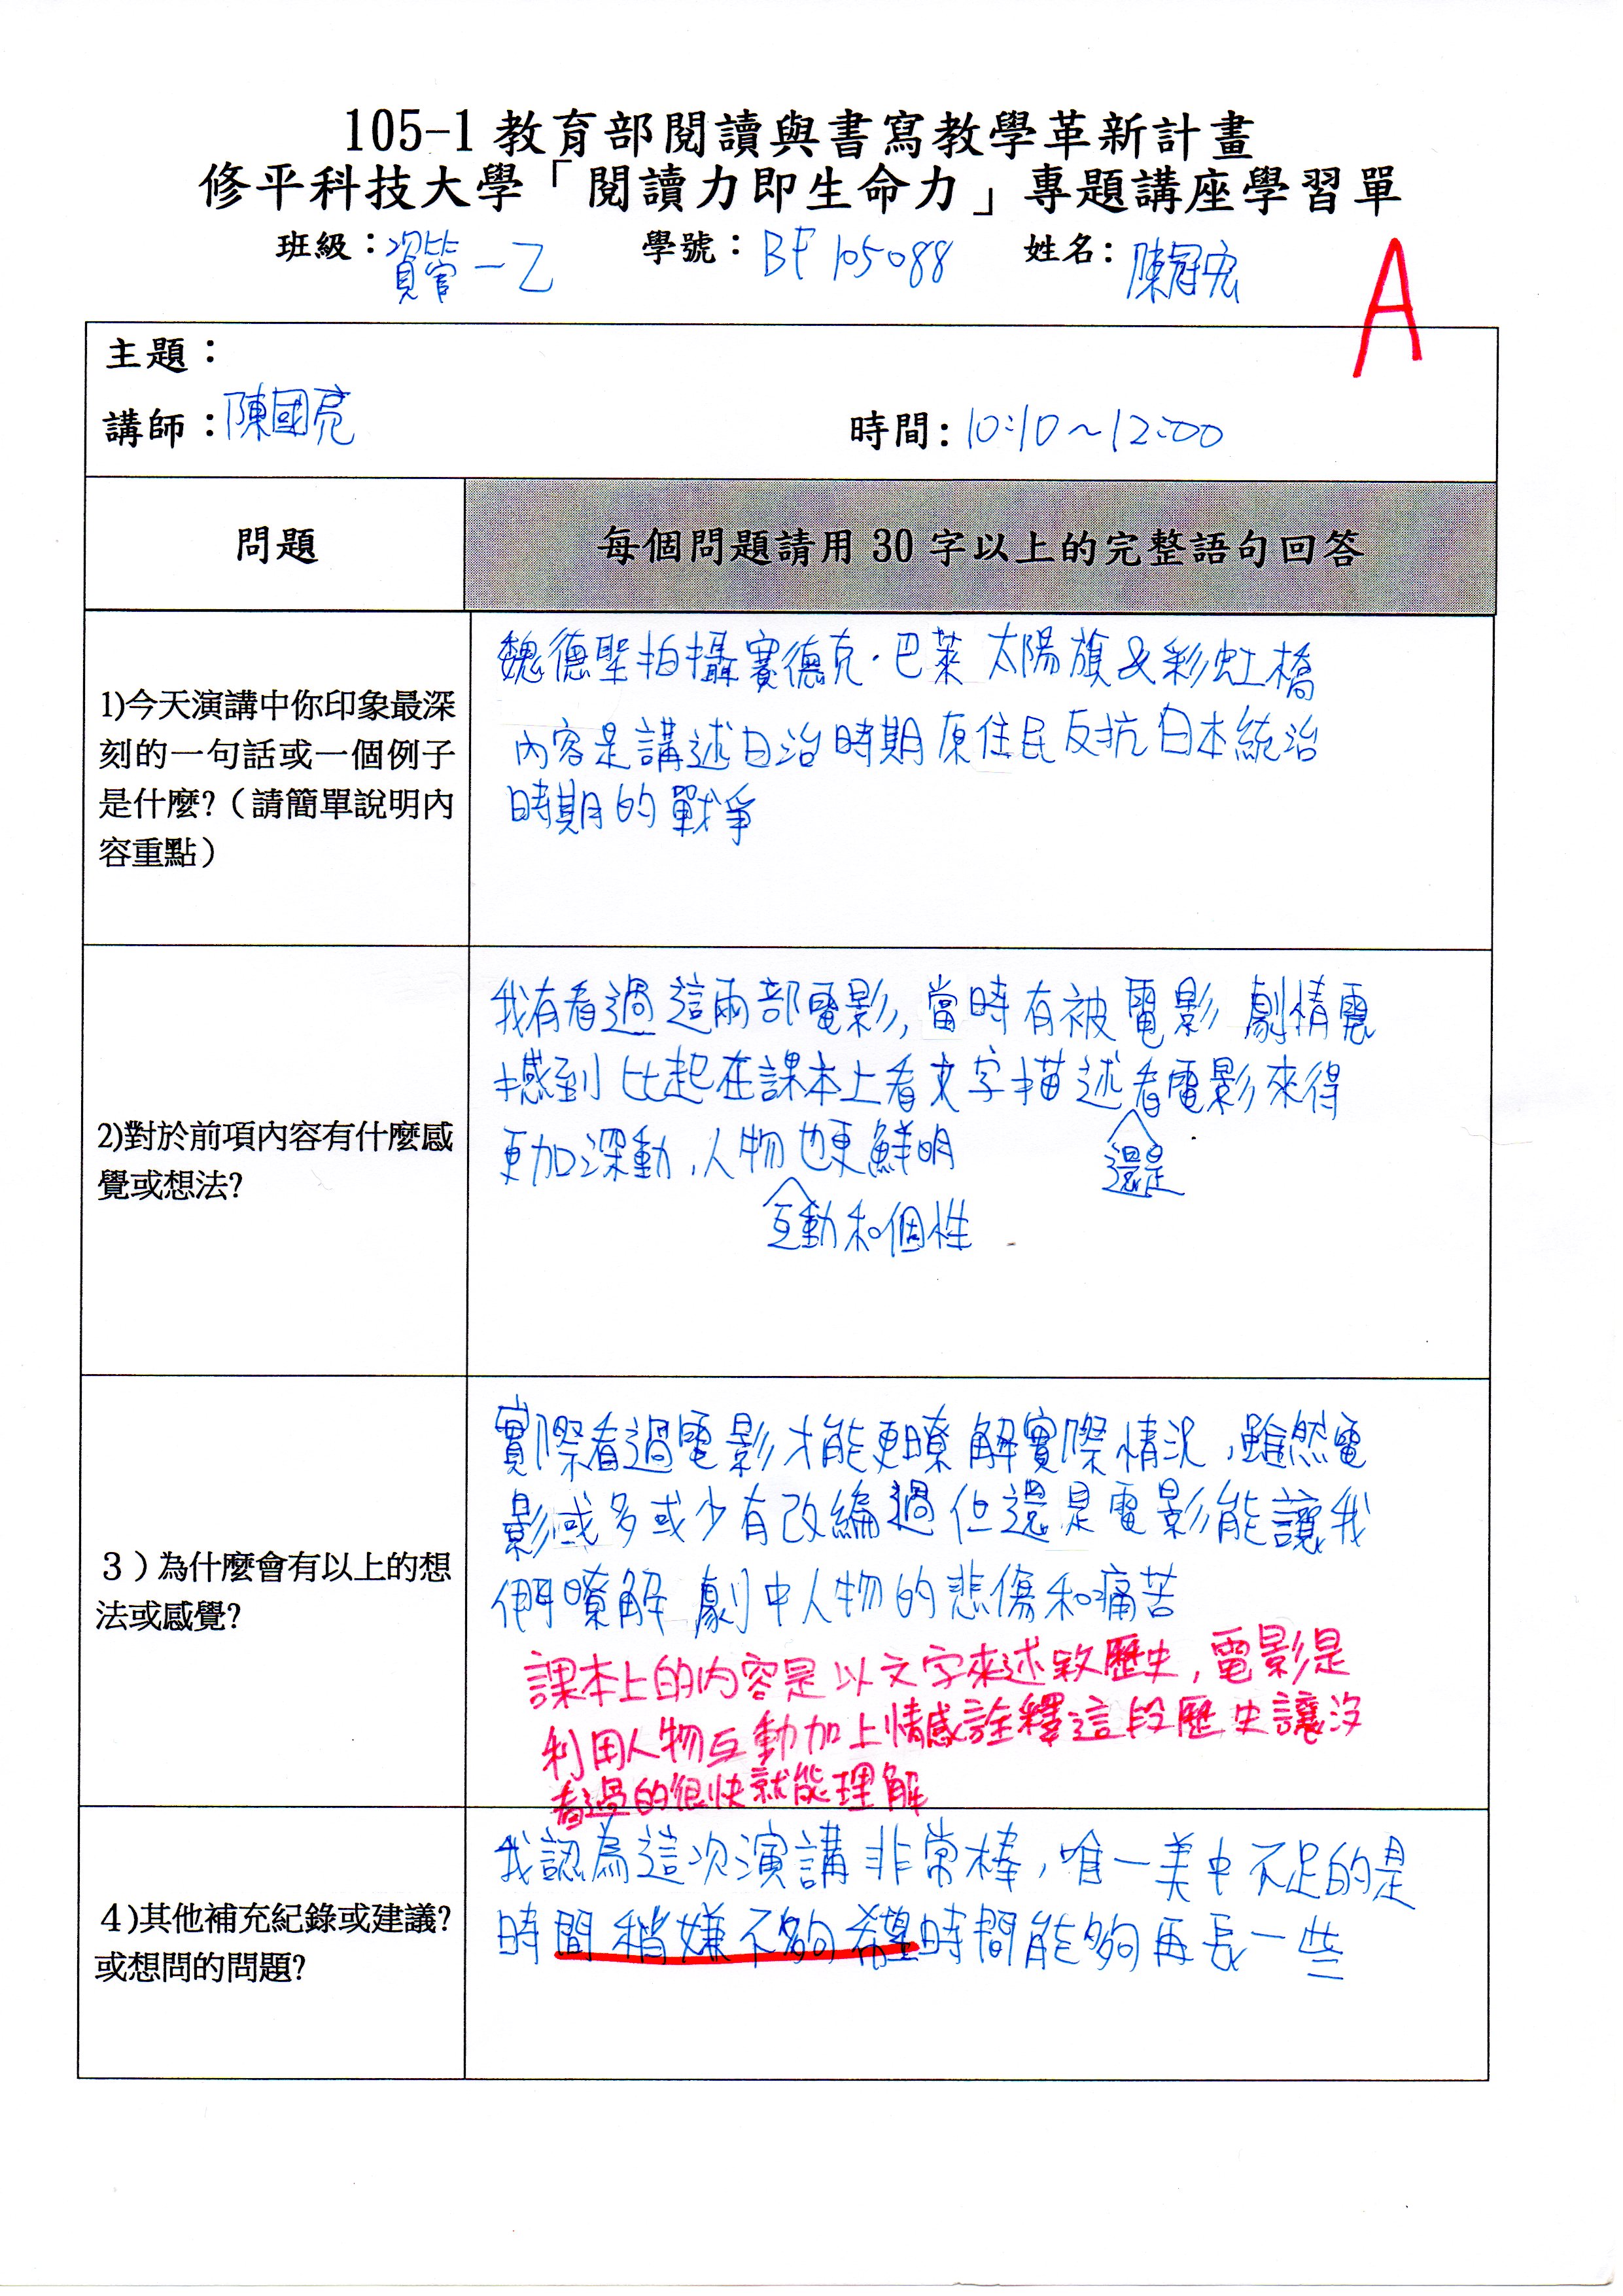 105-1 教育部閱讀與書寫教學革新計畫
修平科技大學「閱讀力即生命力」專題講座學習單
班級：資管一乙 學號：BF105088 姓名：陳冠宏
A
主題：
講師：陳國亮 時間：10:10～12:00
問題
每個問題請用 30 字以上的完整語句回答
1)今天演講中你印象最深
刻的一句話或一個例子
是什麼?（請簡單說明內
容重點）
魏德聖拍攝賽德克·巴萊 太陽旗&彩虹橋
內容是講述日治時期原住民反抗日本統治
時期的戰爭
2)對於前項內容有什麼感
覺或想法?
我有看過這兩部電影,當時有被電影 劇情震
撼到 比起在課本上看文字描述看電影來得
還是
更加深動,人物也更鮮明
互動和個性
3）為什麼會有以上的想
法或感覺?
實際看過電影才能更瞭解實際情況,雖然電
影或多或少有改編過但還是電影能讓我
們瞭解 劇中人物的悲傷和痛苦
課本上的內容是以文字來述敘歷史,電影是
利用人物互動加上情感詮釋這段歷史讓沒
看過的很快就能理解
4)其他補充紀錄或建議?
或想問的問題?
我認為這次演講非常棒,唯一美中不足的是
時間稍嫌不夠希望時間能夠再長一些